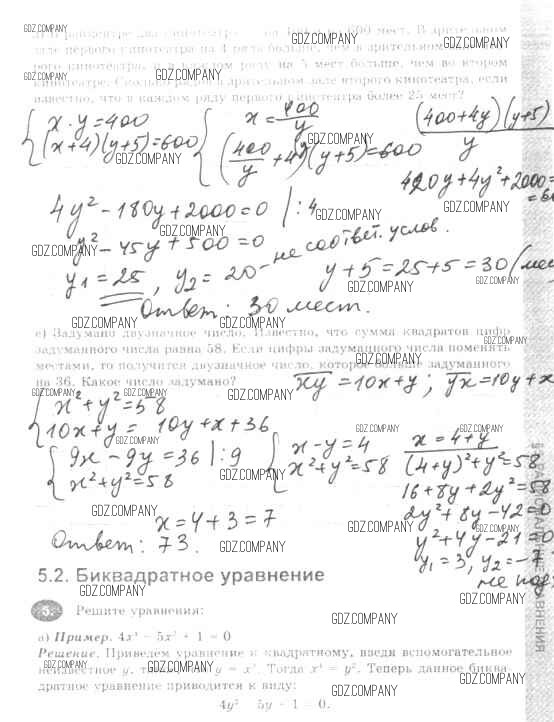 д) В райцентре два кинотеатра на 400 и 600 мест. В зрительном
зале первого кинотеатра на 4 ряда больше, чем в зрительном
рого кинотеатра, и в каждом ряду на 5 мест больше, чем во втором
кинотеатре. Сколько рядов в зрительном зале второго кинотеатра, если
известно, что в каждом ряду первого кинотеатра более 25 мест?
x·y=400
(x+4)(y+5)=600
x=400/y
(400/y+4)(y+5)=600
(400+4y)(y+5)
y
420y+4y²+2000=
4y²-180y+2000=0 |:4
y²-45y+500=0
y₁=25, y₂=20- не соответ. услов.
y+5=25+5=30 (мес
Ответ: 30 мест.
е) Задумано двузначное число. Известно, что сумма квадратов цифр
задуманного числа равна 58. Если цифры задуманного числа поменять
местами, то получится двузначное число, которое больше задуманного
на 36. Какое число задумано?
xy=10x+y; yx=10y+x
x²+y²=58
10x+y=10y+x+36
9x-9y=36 |:9
x²+y²=58
x-y=4
x²+y²=58
x=4+y
(4+y)²+y²=58
16+8y+2y²=58
2y²+8y-42=0
y²+4y-21=0
y₁=3, y₂=-7
не под
x=4+3=7
Ответ: 73.
5.2. Биквадратное уравнение
Решите уравнения:
а) Пример. 4x⁴ - 5x² + 1 = 0
Решение. Приведем уравнение к квадратному, введя вспомогательное
неизвестное y, y = x². Тогда x⁴ = y². Теперь данное биква-
дратное уравнение приводится к виду:
4y² - 5y + 1 = 0.
GDZ.COMPANY